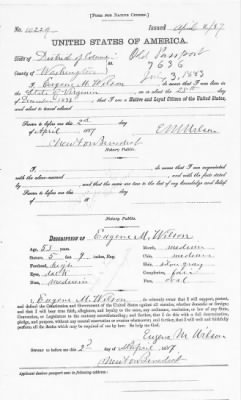 [FORM FOR NATIVE CITIZEN.]
No. 10229 Issued April 2/87
UNITED STATES OF AMERICA.
District of Columbia Old Passport
County of Washington 7636
3, 1883
I, Eugene M. Wilson do swear that I was born in
the State of Virginia on or about the 25th day
of December 1833 that I am a Native and Loyal Citizen of the United States,
and about to travel abroad.
Sworn to before me this 2nd day
of April 1887 E M Wilson
Newton Benedict
Notary Public.
I, do swear that I am acquainted
with the above-named and with the facts stated
by and that the same are true to the best of my knowledge and belief.
Sworn to before me this day
of
Notary Public.
DESCRIPTION OF Eugene M. Wilson
Age, 53 years. Mouth, medium
Stature, 5 feet 9 inches, Eng. Chin, medium
Forehead, high Hair, iron gray
Eyes, dark Complexion, fair
Nose, medium Face, oval
I, Eugene M. Wilson, do solemnly swear that I will support, protect,
and defend the Constitution and Government of the United States against all enemies, whether domestic or foreign;
and that I will bear true faith, allegiance, and loyalty to the same, any ordinance, resolution, or law of any State,
Convention, or Legislature to the contrary notwithstanding; and further, that I do this with a full determination,
pledge, and purpose, without any mental reservation or evasion whatsoever; and further, that I will well and faithfully
perform all the duties which may be required of me by law. So help me God.
Eugene M Wilson
Sworn to before me this 2d April 1887
Newton Benedict
Applicant desires passport sent to following address: